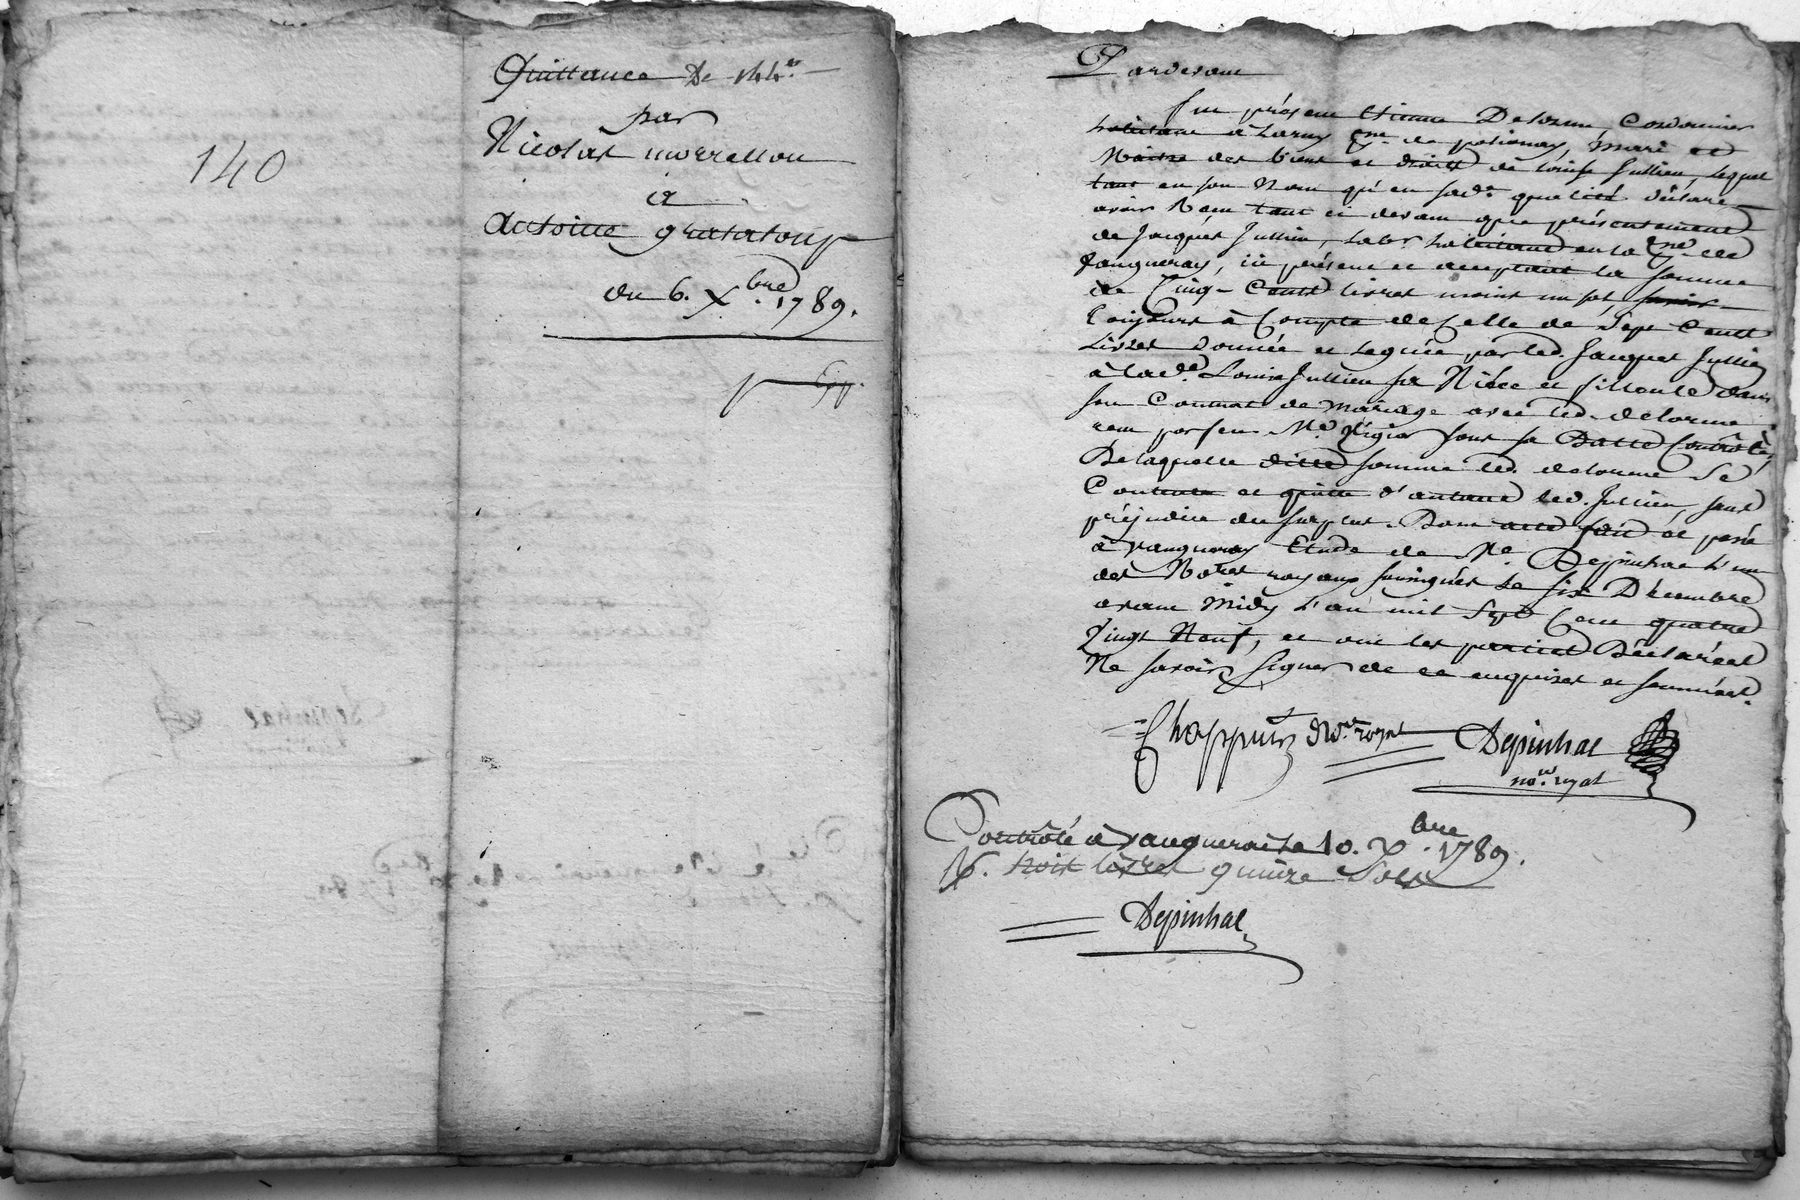 140
Quittance De 144.#
par
Nicolas morrellon
a
Antoine grataloup
du 6. Xbre. 1789.
Pardevant
fut présent Etienne Delorme Cordonnier
habitant à Larny psse. de polionay, mari et
Maitre des biens et droits de Louise Jullien, lequel
tant en son Nom qu'en sade. qualité déclare
avoir Recu tant ci devant que présentement
de Jacques Jullien, habitant en la psse. de
Vaugneray, ici présent et acceptant la somme
de Cinq Cents livres moins un sol,
à Compte de Celle de Sept Cents
Livres donnée et leguée par led. Jacques Jullien
à lade. Louise Jullien sa Niéce et filleule dans
son Contrat de mariage avec led. delorme
recu par feu Me. sous sa Datte Contrôlé,
De laquelle ditte somme led. delorme Se
Contente et quitte d'autant led. Jullien, sans
préjudice du surplus. Dont acte fait et passé
à vaugneray Etude de Me. Depinhac l'un
des Nores. royaux soussignés le six Décembre
avant Midy l'an mil Sept Cent quatre
Vingt Neuf, et ont les parties Déclarées
Ne savoir signer de ce enquises et sommées.
Chappuis Nore. royal Depinhac
nore. royal
Contrôlé à vaugnerai le 10. Xbre. 1789.
livres quinze Sols
Depinhac